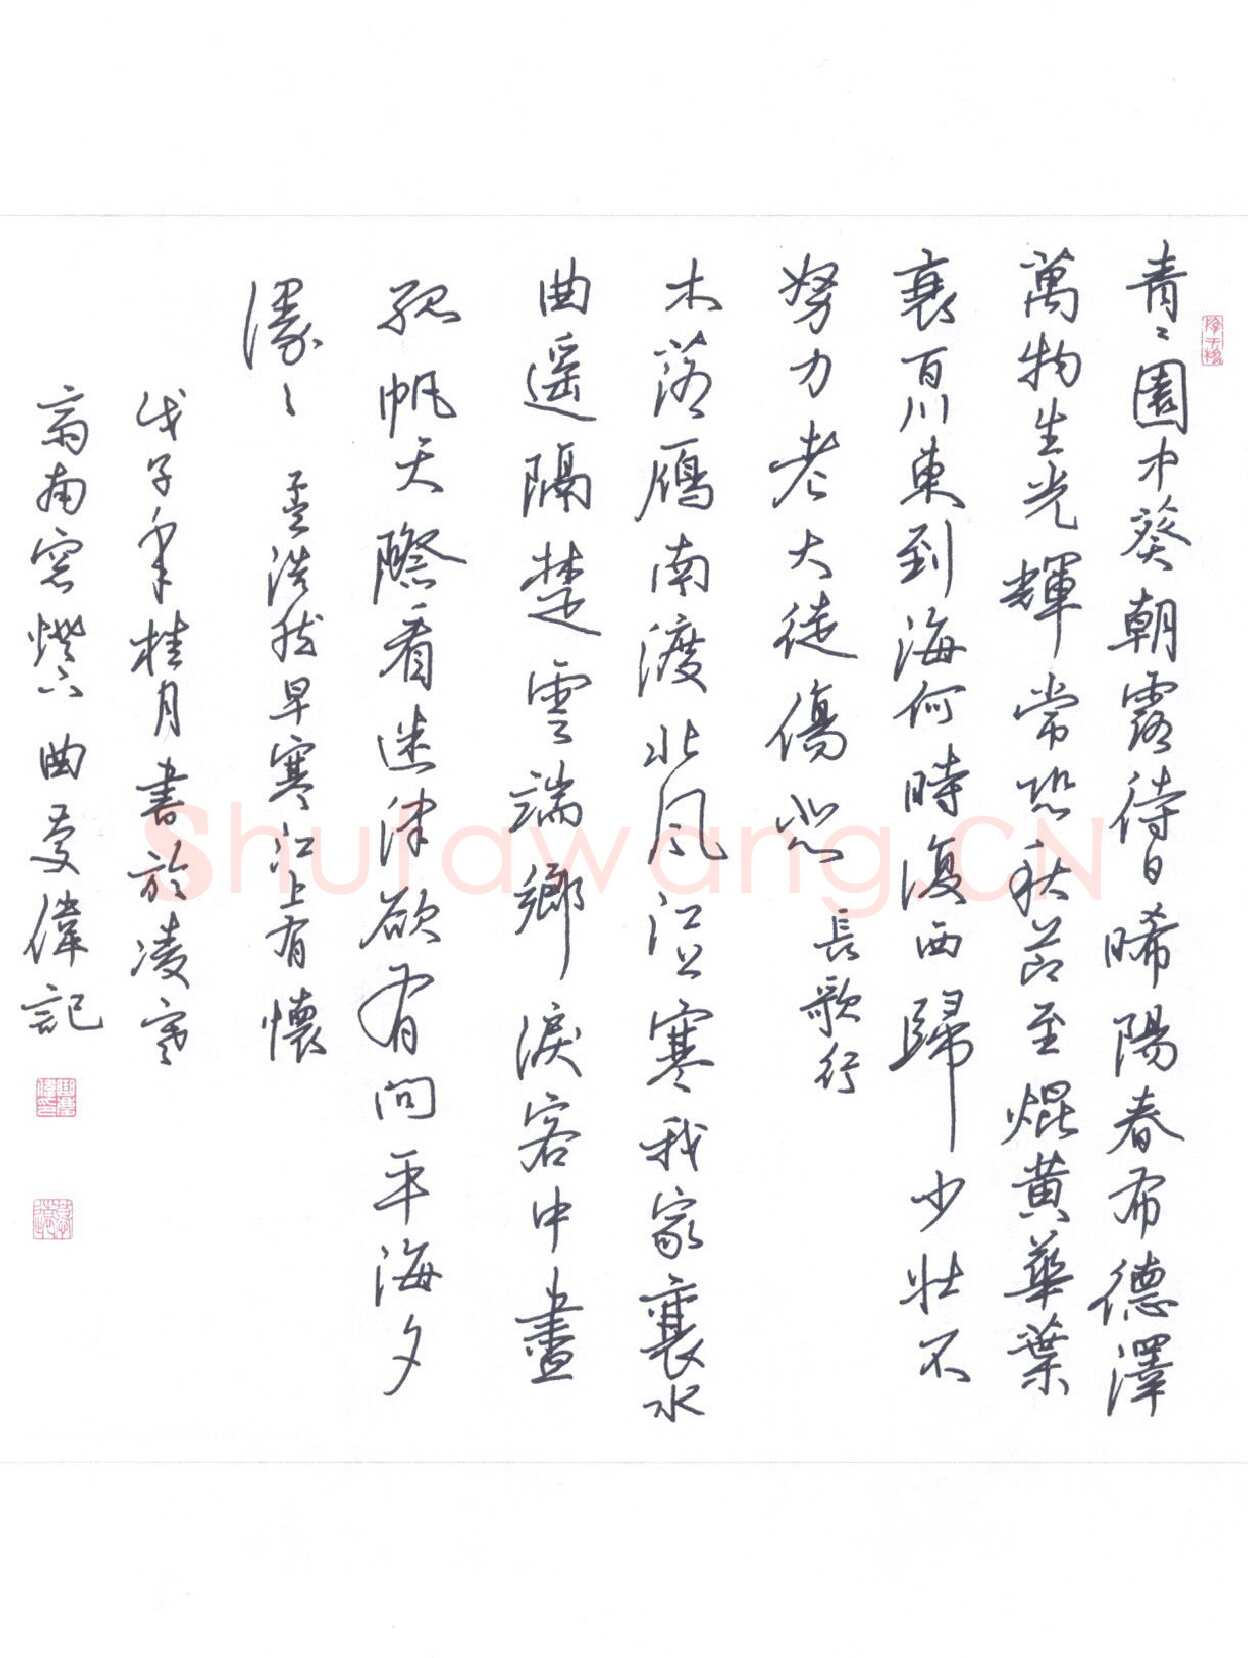 青〻園中葵朝露待日晞陽春布德澤
萬物生光輝常恐秋節至焜黃華葉
衰百川東到海何時復西歸少壯不
努力老大徒傷悲 長歌行
木落鴈南渡北風江上寒我家襄水
曲遙隔楚雲端鄉淚客中盡
孤帆天際看迷津欲有問平海夕
漫〻 孟浩然早寒江上有懷
戊子年桂月書於凌寒
齋南窗燈下曲慶偉記
Shufawang.CN